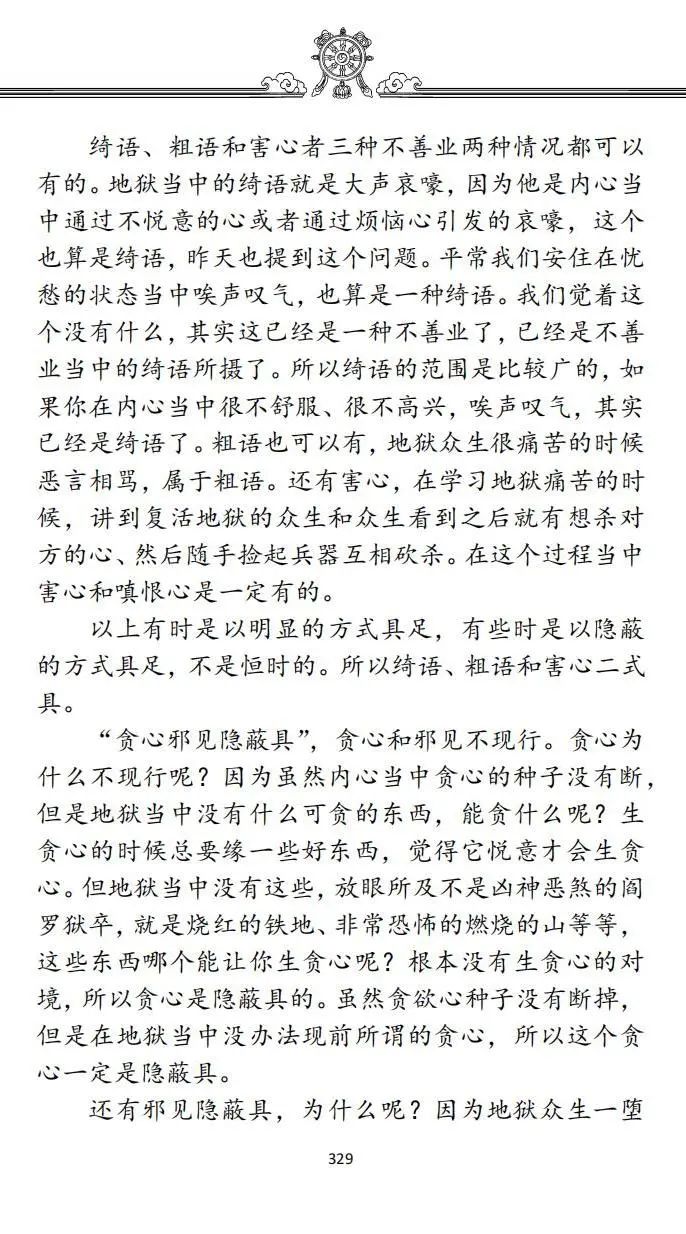 绮语、粗语和害心者三种不善业两种情况都可以
有的。地狱当中的绮语就是大声哀嚎，因为他是内心当
中通过不悦意的心或者通过烦恼心引发的哀嚎，这个
也算是绮语，昨天也提到这个问题。平常我们安住在忧
愁的状态当中唉声叹气，也算是一种绮语。我们觉着这
个没有什么，其实这已经是一种不善业了，已经是不善
业当中的绮语所摄了。所以绮语的范围是比较广的，如
果你在内心当中很不舒服、很不高兴，唉声叹气，其实
已经是绮语了。粗语也可以有，地狱众生很痛苦的时候
恶言相骂，属于粗语。还有害心，在学习地狱痛苦的时
候，讲到复活地狱的众生和众生看到之后就有想杀对
方的心、然后随手捡起兵器互相砍杀。在这个过程当中
害心和嗔恨心是一定有的。
以上有时是以明显的方式具足，有些时是以隐蔽
的方式具足，不是恒时的。所以绮语、粗语和害心二式
具。
“贪心邪见隐蔽具”，贪心和邪见不现行。贪心为
什么不现行呢？因为虽然内心当中贪心的种子没有断，
但是地狱当中没有什么可贪的东西，能贪什么呢？生
贪心的时候总要缘一些好东西，觉得它悦意才会生贪
心。但地狱当中没有这些，放眼所及不是凶神恶煞的阎
罗狱卒，就是烧红的铁地、非常恐怖的燃烧的山等等，
这些东西哪个能让你生贪心呢？根本没有生贪心的对
境，所以贪心是隐蔽具的。虽然贪欲心种子没有断掉，
但是在地狱当中没办法现前所谓的贪心，所以这个贪
心一定是隐蔽具。
还有邪见隐蔽具，为什么呢？因为地狱众生一堕
329